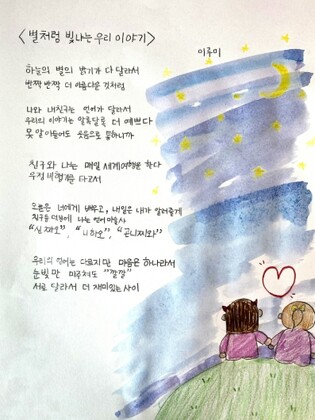 <별처럼 빛나는 우리 이야기>
이루미
하늘의 별의 밝기가 다 달라서
반짝 반짝 더 아름다운 것처럼
나와 내친구는 언어가 달라서
우리의 이야기는 알록달록 더 예쁘다
못 알아들어도 웃음으로 통하니까
친구와 나는 매일 세계여행을 한다
우정 비행기를 타고서
오늘은 너에게 배우고, 내일은 내가 알려줄게
친구들 덕분에 나는 언어마술사
"씬 짜오", "니하오", "곤니찌와"
우리의 언어는 다르지만 마음은 하나라서
눈빛만 마주쳐도 "깔깔"
서로 달라서 더 재미있는 사이